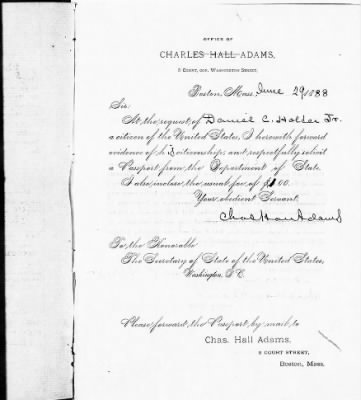 OFFICE OF
CHARLES HALL ADAMS,
5 COURT, COR. WASHINGTON STREET,
Boston, Mass. June 29 1888
Sir:
At the request of Daniel C. Holder Jr.
a citizen of the United States, I herewith forward
evidence of his citizenship; and respectfully solicit
a Passport from the Department of State.
I also inclose the usual fee of $1.00.
Your obedient Servant,
Chas Hall Adams
To the Honorable
The Secretary of State of the United States,
Washington, D.C.
Please forward, the Passport, by mail, to
Chas. Hall Adams,
5 COURT STREET,
BOSTON, MASS.